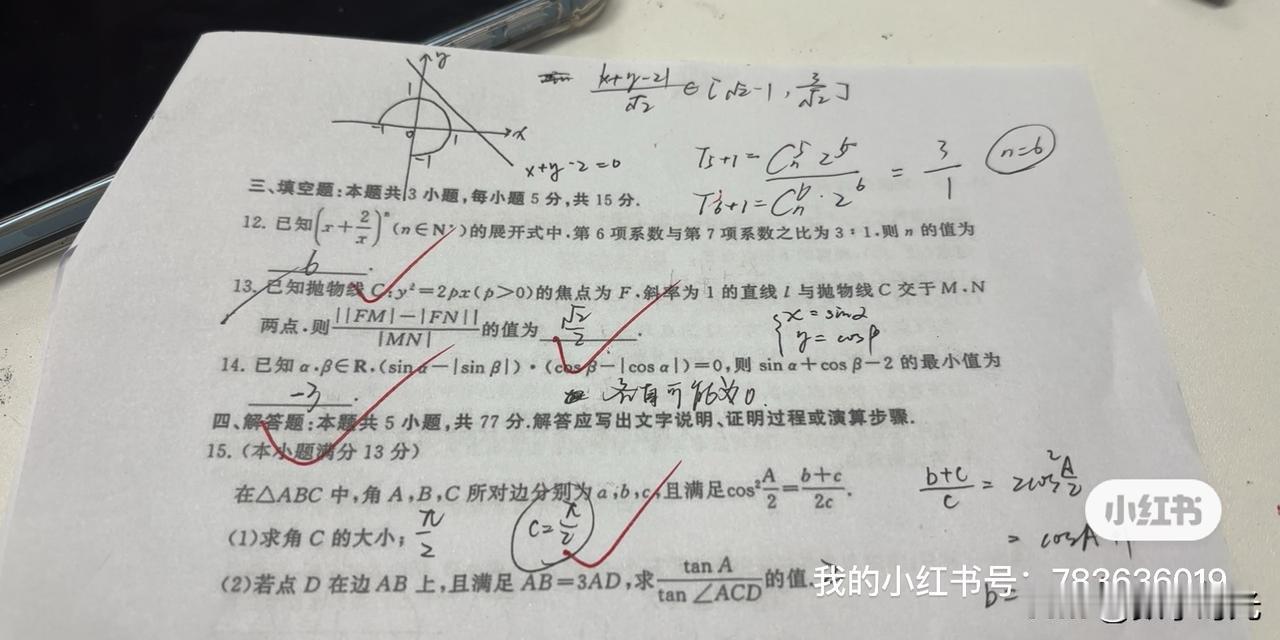 y
1
-1 0 1 x
-1
x+y-2=0
|x+y-2|/√2 ∈ [√2-1, 3/√2]
T5+1 = C_n^5 2^5
T6+1 = C_n^6 · 2^6
= 3/1
n=6
三、填空题:本题共3小题,每小题5分,共15分.
12. 已知(x+2/x)^n(n∈N*)的展开式中,第6项系数与第7项系数之比为3:1,则n的值为
6.
13. 已知抛物线C:y²=2px(p>0)的焦点为F,斜率为1的直线l与抛物线C交于M,N
两点,则||FM|-|FN||/|MN|的值为√2/2.
x=sinα
y=cosβ
14. 已知α,β∈R,(sin α-|sin β|)·(cos β-|cos α|)=0,则sin α+cos β-2的最小值为
-3.
各有可能为0.
四、解答题:本题共5小题,共77分.解答应写出文字说明、证明过程或演算步骤.
15.(本小题满分13分)
在△ABC中,角A,B,C所对边分别为a,b,c,且满足cos²A/2=(b+c)/2c.
(b+c)/c = 2cos²A/2
= cosA+1
(1)求角C的大小; π/2
C=π/2
(2)若点D在边AB上,且满足AB=3AD,求tan A/tan∠ACD的值.
b=
小红书
我的小红书号:783636019